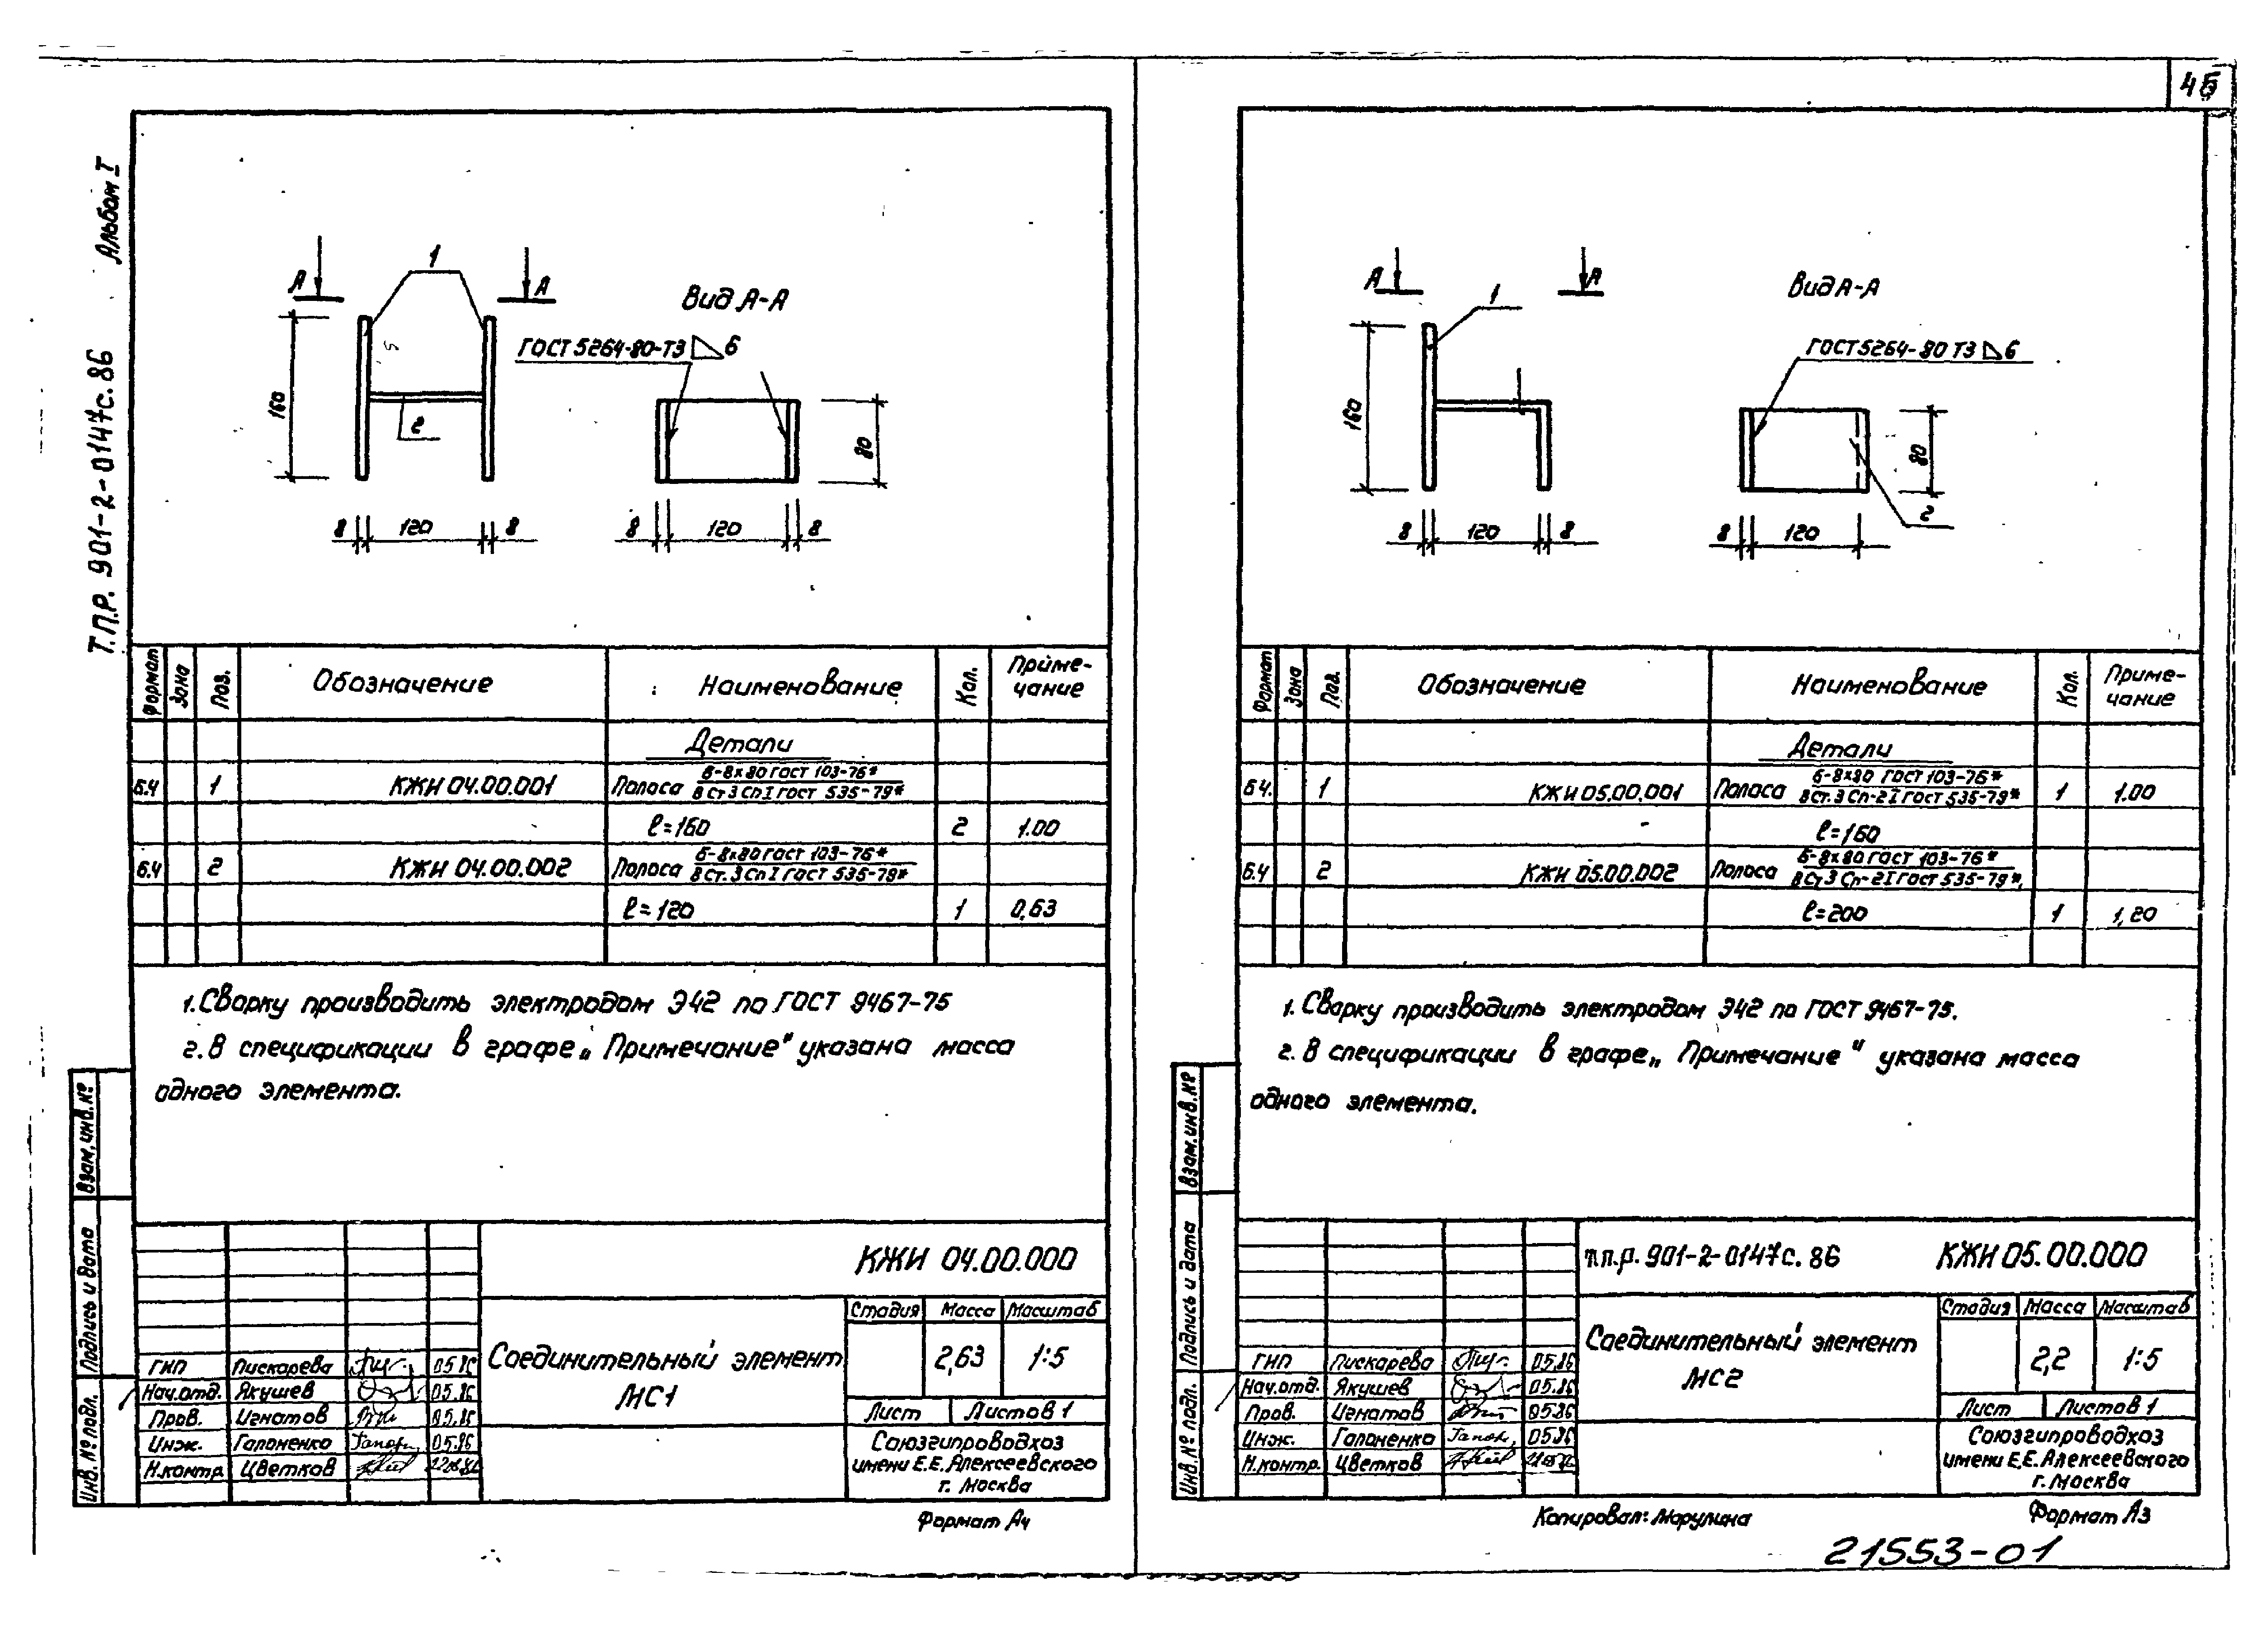 45
Альбом I
Т.П.Р. 901-2-0147с.86
А
А
1
2
160
8
120
8
Вид А-А
ГОСТ 5264-80-Т3 6
80
8
120
8
Формат
Зона
Поз.
Обозначение
Наименование
Кол.
Приме-
чание
Детали
Б.Ч
1
КЖИ 04.00.001
Полоса Б-8х80 ГОСТ 103-76*
В Ст3 Сп I ГОСТ 535-79*
ℓ=160
2
1.00
Б.Ч
2
КЖИ 04.00.002
Полоса Б-8х80 ГОСТ 103-76*
В Ст.3 Сп I ГОСТ 535-79*
ℓ=120
1
0,63
1. Сварку производить электродом Э42 по ГОСТ 9467-75
2. В спецификации в графе „Примечание" указана масса
одного элемента.
Взам.инв.№
Подпись и дата
Инв.№ подл.
КЖИ 04.00.000
Соединительный элемент
МС1
Стадия Масса Масштаб
2,63 1:5
Лист Листов 1
ГИП Пискарева 05.86
Нач.отд. Якушев 05.86
Пров. Игнатов 05.86
Инж. Гапоненко 05.86
Н.контр Цветков
Союзгипроводхоз
имени Е.Е.Алексеевского
г. Москва
Формат А4
А
А
1
160
8
120
8
Вид А-А
ГОСТ 5264-80 Т3 6
80
2
8
120
Формат
Зона
Поз.
Обозначение
Наименование
Кол.
Приме-
чание
Детали
Б.Ч.
1
КЖИ 05.00.001
Полоса Б-8х80 ГОСТ 103-76*
В Ст.3 Сп-2 I ГОСТ 535-79*
1
1.00
ℓ=160
Б.Ч
2
КЖИ 05.00.002
Полоса Б-8х80 ГОСТ 103-76*
В Ст3 Сп-2 I ГОСТ 535-79*
ℓ=200
1
1,20
1. Сварку производить электродом Э42 по ГОСТ 9467-75.
2. В спецификации в графе „Примечание" указана масса
одного элемента.
Взам.инв.№
Подпись и дата
Инв.№ подл.
т.п.р. 901-2-0147с.86 КЖИ 05.00.000
Соединительный элемент
МС2
Стадия Масса Масштаб
2,2 1:5
Лист Листов 1
ГИП Пискарева 05.86
Нач.отд. Якушев 05.86
Пров. Игнатов 05.86
Инж. Гапоненко 05.86
Н.контр. Цветков
Союзгипроводхоз
имени Е.Е.Алексеевского
г. Москва
Копировал: Марулина
Формат А3
21553-01